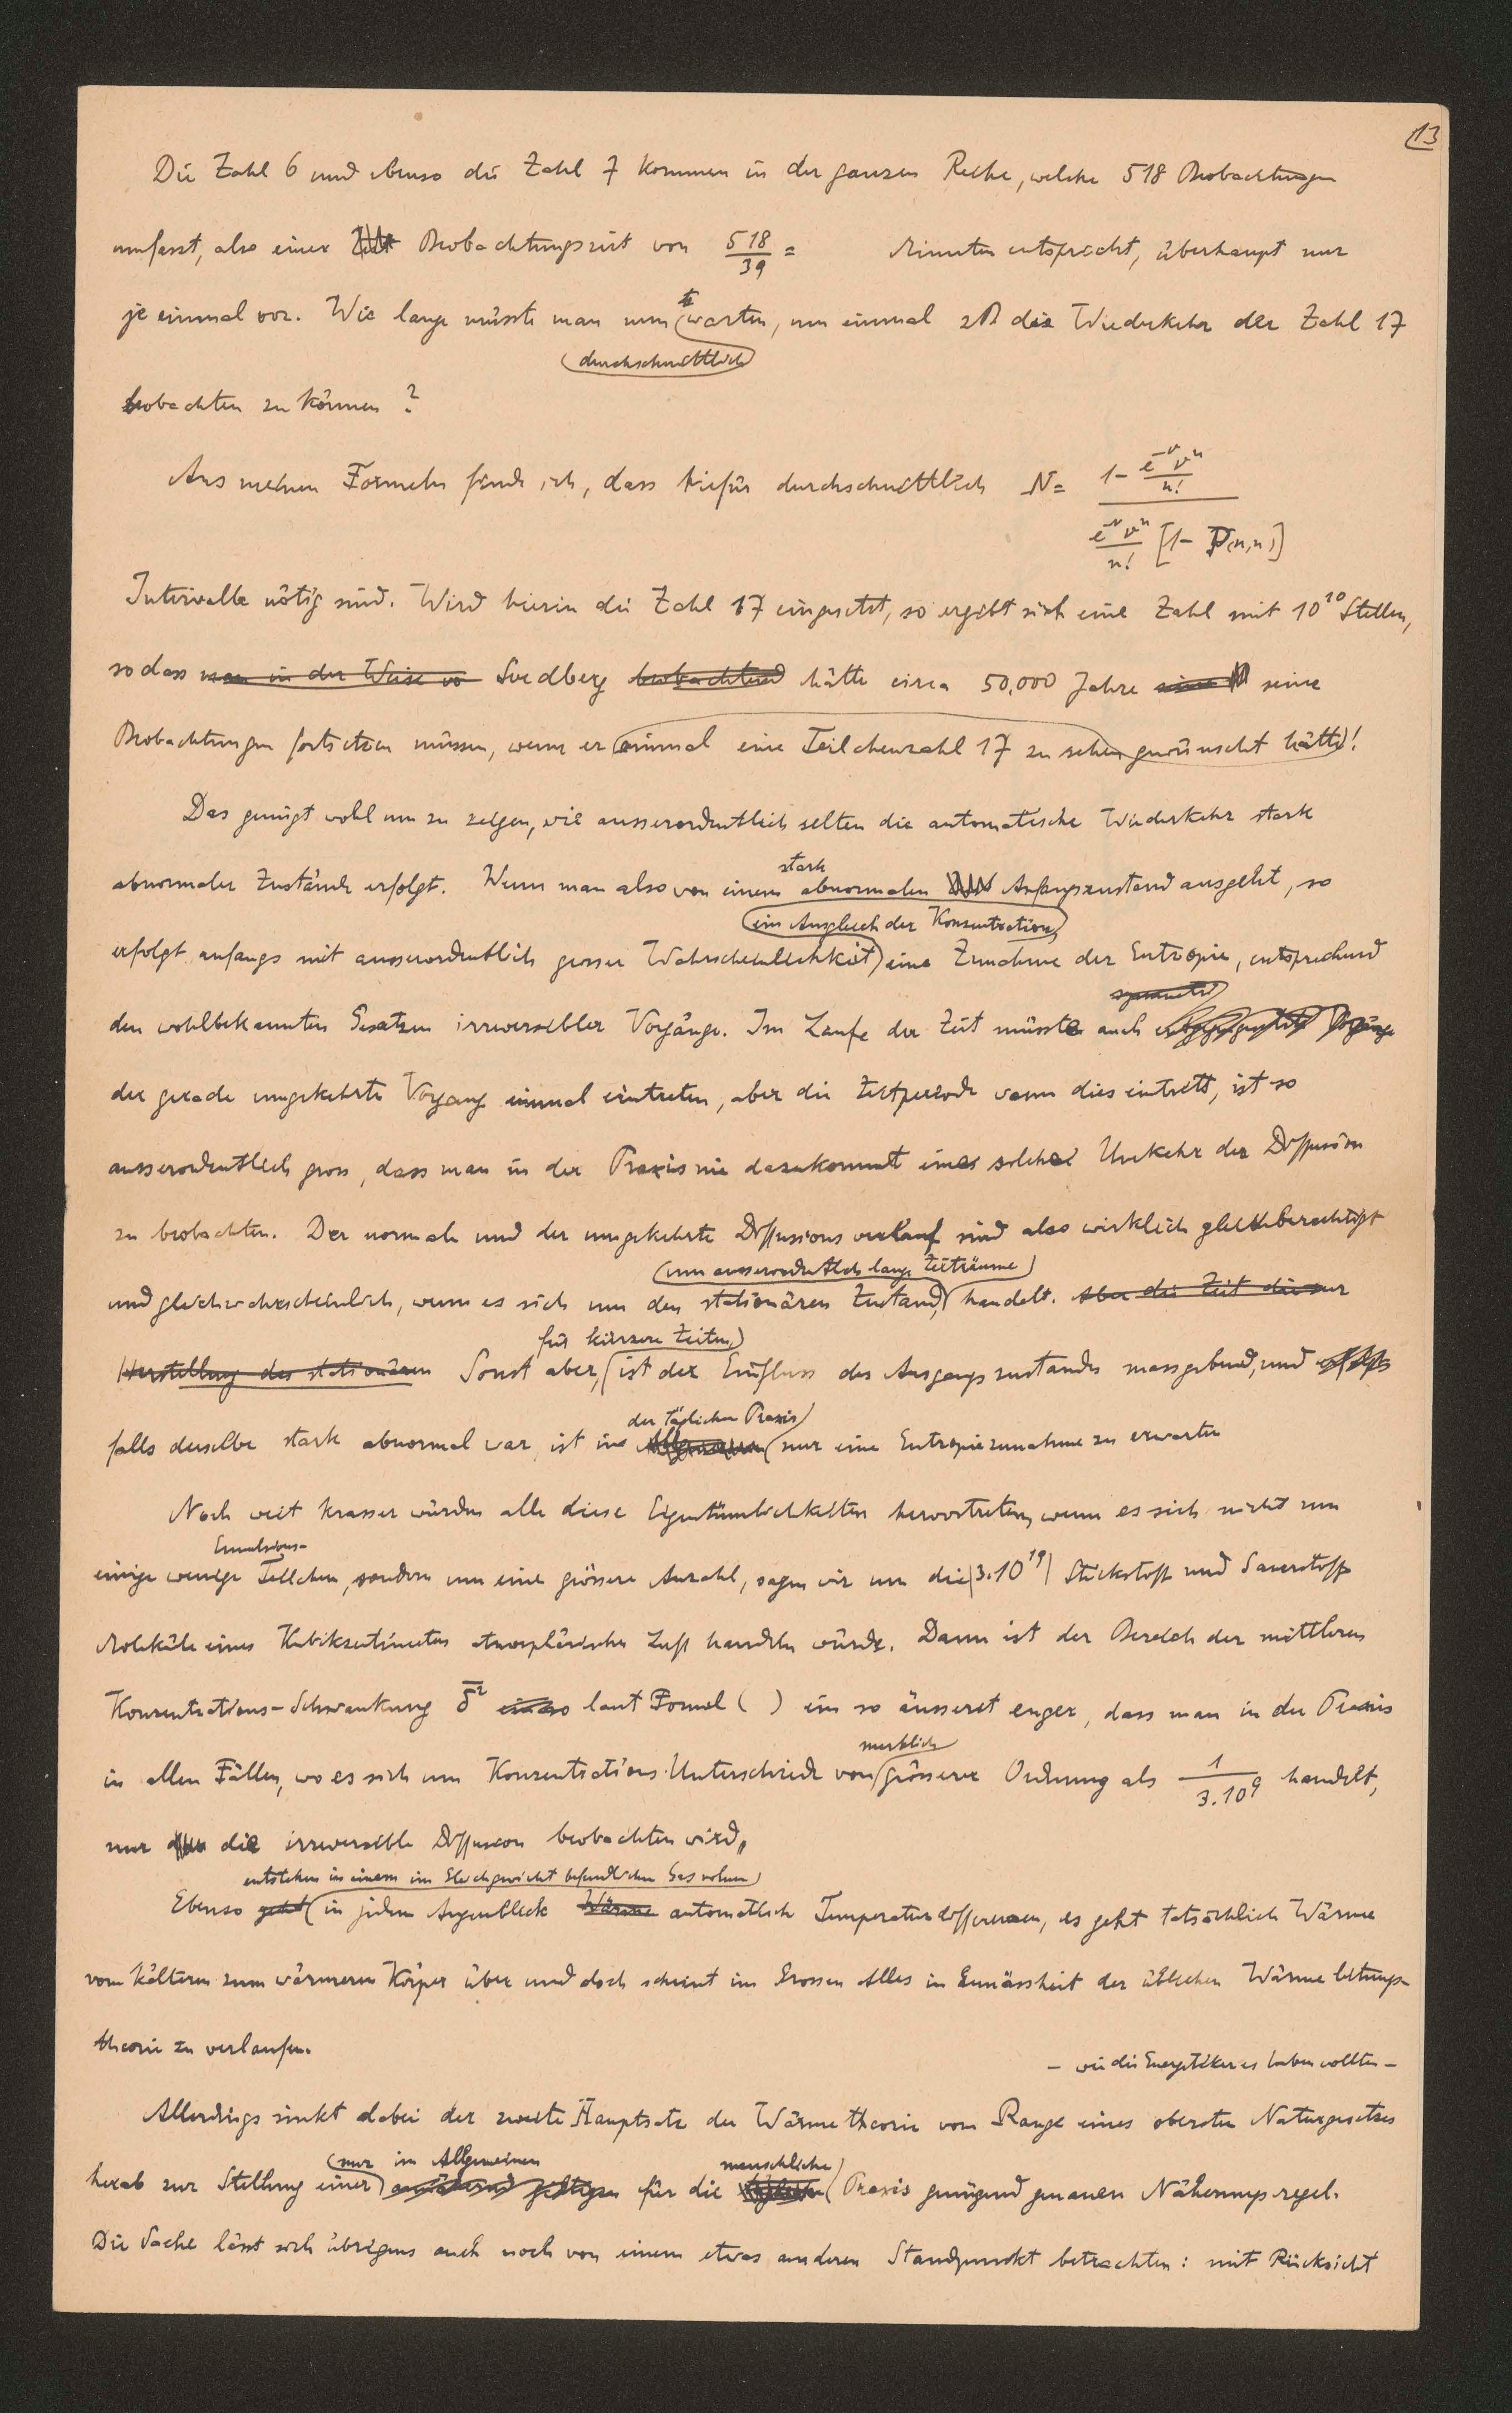 13
Die Zahl 6 und ebenso die Zahl 7 kommen in der ganzen Reihe, welche 518 Beobachtungen
umfasst, also einer Beobachtungszeit von 518/39 = Minuten entspricht, überhaupt nur
je einmal vor. Wie lange müsste man nun warten, um einmal zB die Wiederkehr der Zahl 17
durchschnittlich
beobachten zu können?
Aus meinen Formeln finde ich, dass hiefür durchschnittlich N = (1 - e^-ν ν^n / n!) / (e^-ν ν^n / n! [1 - P(n,n)])
Intervalle nötig sind. Wird hierin die Zahl 17 eingesetzt, so ergibt sich eine Zahl mit 10^10 Stellen,
so dass man in der Weise vo Svedberg beobachtend hätte circa 50.000 Jahre seine
Beobachtungen fortsetzen müssen, wenn er einmal eine Teilchenzahl 17 zu sehen gewünscht hätte!
Das genügt wohl um zu zeigen, wie ausserordentlich selten die automatische Wiederkehr stark
stark
abnormaler Zustände erfolgt. Wenn man also von einem abnormalen Anfangszustand ausgeht, so
ein Ausgleich der Konzentration,
erfolgt anfangs mit ausserordentlich grosser Wahrscheinlichkeit eine Zunahme der Entropie, entsprechend
den wohlbekannten Gesetzen irreversibler Vorgänge. Im Laufe der Zeit müsste auch
der gerade umgekehrte Vorgang einmal eintreten, aber die Zeitperiode wann dies eintritt, ist so
ausserordentlich gross, dass man in der Praxis nie dazukommt eine solche Umkehr der Diffusion
zu beobachten. Der normale und der umgekehrte Diffusionsverlauf sind also wirklich gleichberechtigt
um ausserordentlich lange Zeiträume
und gleichwahrscheinlich, wenn es sich um den stationären Zustand, handelt. Aber die Zeit dieser
für kürzere Zeiten
Herstellung des stationären Sonst aber, ist der Einfluss des Ausgangszustandes massgebend, und
der täglichen Praxis
falls derselbe stark abnormal war, ist in nur eine Entropiezunahme zu erwarten
Noch weit krasser würden alle diese Eigentümlichkeiten hervortreten, wenn es sich nicht um
Emulsions-
einige wenige Teilchen, sondern um eine grössere Anzahl, sagen wir um die 3.10^19 Stickstoff und Sauerstoff
Moleküle eines Kubikzentimeters atmosphärischer Luft handeln würde. Dann ist der Bereich der mittleren
Konzentrations-Schwankung δ̄² laut Formel ( ) ein so äusserst enger, dass man in der Praxis
merklich
in allen Fällen, wo es sich um Konzentrations-Unterschiede von grösserer Ordnung als 1/3.10^9 handelt,
nur die irreversible Diffusion beobachten wird.
entstehen in einem im Gleichgewicht befindlichen Gasvolum
Ebenso geht in jedem Augenblick Wärme automatisch Temperaturdifferenzen, es geht tatsächlich Wärme
vom kälteren zum wärmeren Körper über und doch scheint im Grossen Alles in Gemässheit der üblichen Wärmeleitungs-
theorie zu verlaufen.
– wie die Energetiker es haben wollten –
Allerdings sinkt dabei der zweite Hauptsatz der Wärmetheorie vom Range eines obersten Naturgesetzes
nur im Allgemeinen menschliche
herab zur Stellung einer für die Praxis genügend genauen Näherungsregel.
Die Sache lässt sich übrigens auch noch von einem etwas anderen Standpunkt betrachten: mit Rücksicht